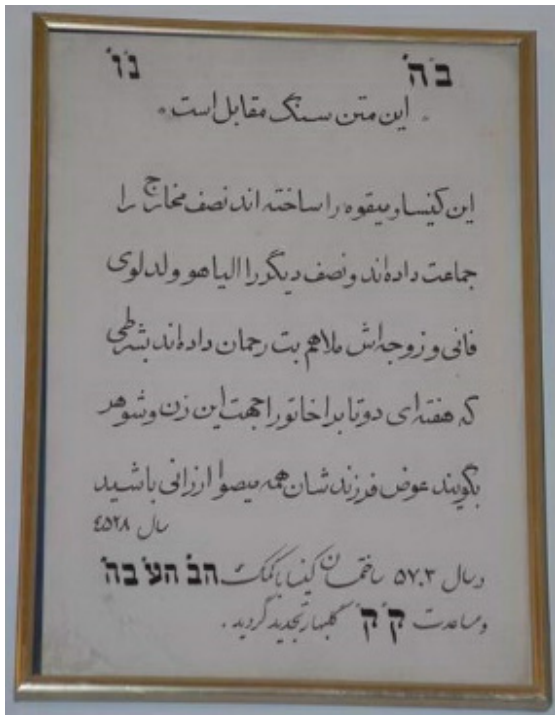 ב'ה' נ'ו'
این متن سنگ مقابل است
این کنیسا و میقوه را ساخته اند نصف مخارج را
جماعت داده اند و نصف دیگر را الیاهو ولد لوی
فانی و زوجه اش ملاهم بت رحمان داده اند بشرطی
که هفته ای دو تا براخا تورا جهت این زن و شوهر
بگویند عوض فرزندشان همه میصوا ارزانی باشید
سال ٤٥٢٨
در سال ۵۷۰۳ ساختمان کنیسا با کمک הב' הע' בה'
و مساعدت ק' ק' گلبهار تجدید گردید.